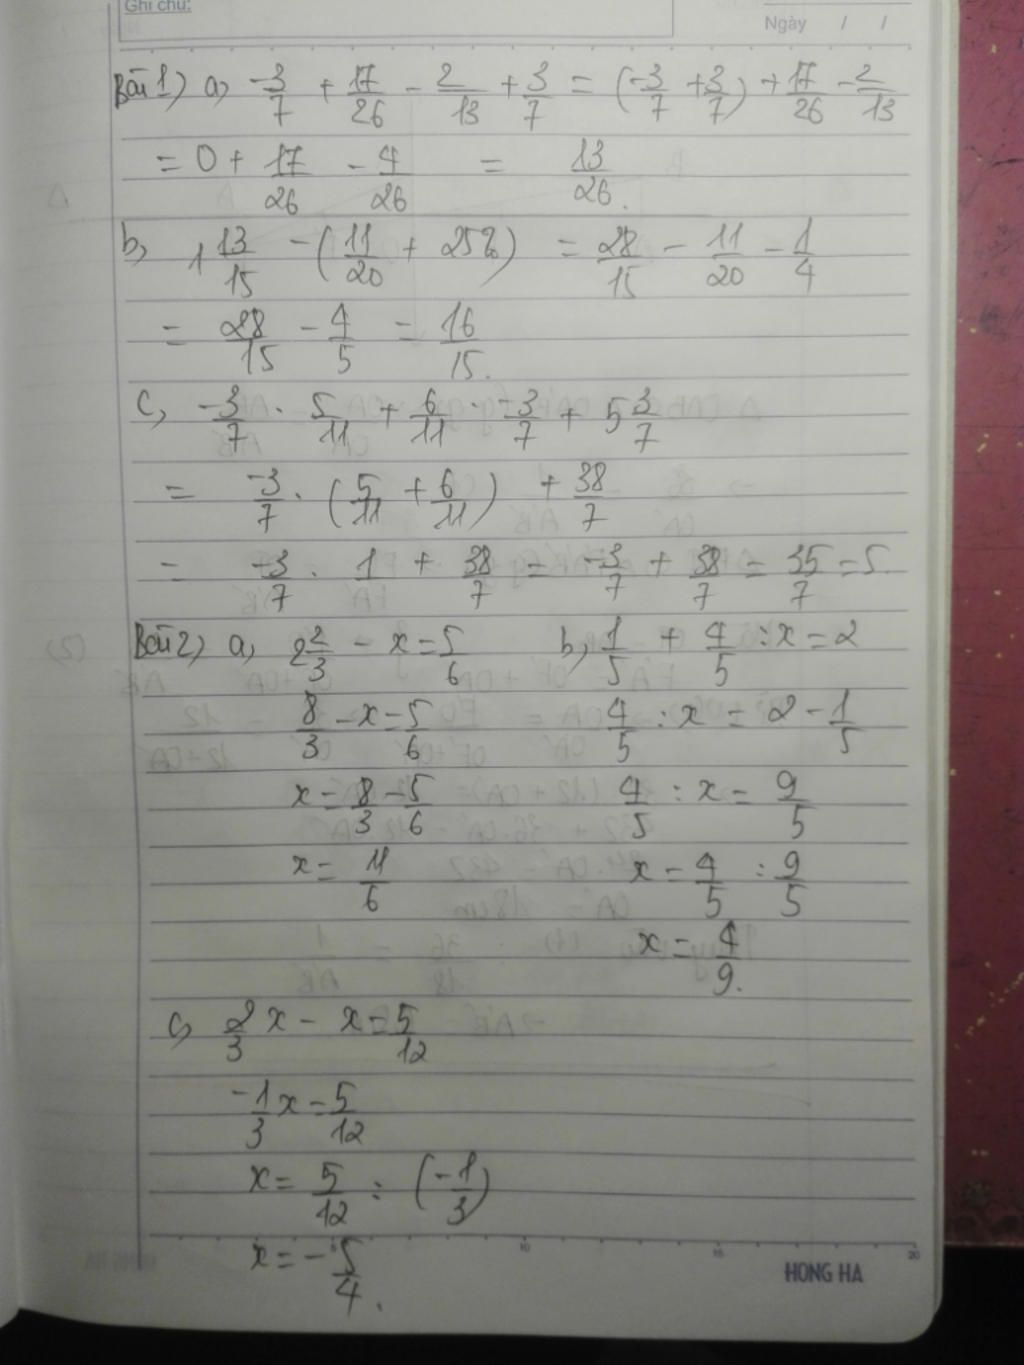 Ghi chú:
Ngày / /
Bài 1) a, -3/7 + 17/26 - 2/13 + 3/7 = (-3/7 + 3/7) + 17/26 - 2/13
= 0 + 17/26 - 4/26 = 13/26.
b, 1 13/15 - (11/20 + 25%) = 28/15 - 11/20 - 1/4
= 28/15 - 4/5 = 16/15.
c, -3/7 . 5/11 + 6/11 . -3/7 + 5 3/7
= -3/7 . (5/11 + 6/11) + 38/7
= -3/7 . 1 + 38/7 = -3/7 + 38/7 = 35/7 = 5.
Bài 2) a, 2 2/3 - x = 5/6 b, 1/5 + 4/5 : x = 2
8/3 - x = 5/6 4/5 : x = 2 - 1/5
x = 8/3 - 5/6 4/5 : x = 9/5
x = 11/6 x = 4/5 : 9/5
x = 4/9.
c, 2/3 x - x = 5/12
-1/3 x = 5/12
x = 5/12 : (-1/3)
x = -5/4.
10 15 20
HONG HA